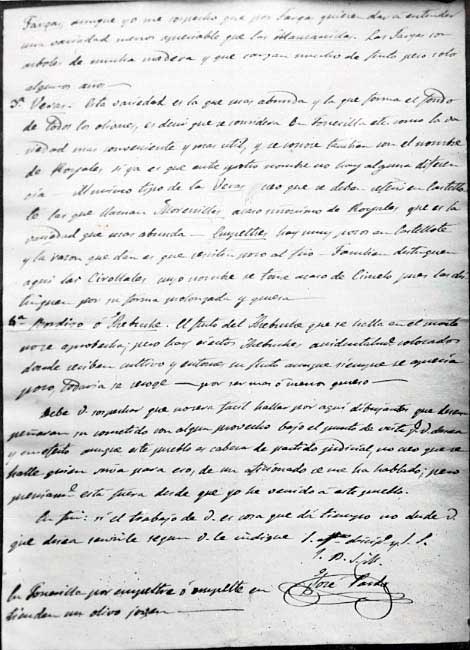 Farga, aunque yo me sospecho que por Farga quieren dar á entender
una variedad menos apreciable que las Manzanidas. Las Fargas son
arboles de mucha madera y que cargan mucho de fruto pero solo
algunos años —
5ª Veras. Esta variedad es la que mas abunda y la que forma el fondo
de todos los olivares, es decir que se considera en Foncilla etc. como la va
riedad mas conveniente y mas util, y se conoce tambien con el nombre
de Royales si ya es que entre y otro nombre no hay alguna diferen
cia — Al mismo tipo de la Veras creo que se deben referir en Castello
te las que llaman Morenillas, acaso sinonimo de Royales, que es la
variedad que mas abunda — Empeltes, hay muy pocos en Castellote
y la razon que dan es que resisten poco al frio — Tambien distinguen
aqui las Cirollales cuyo nombre se tome acaso de Ciruelo pues las dis
tinguen por su forma prolongada y gruesa.
6ª ó Acebuche. El fruto del Acebuche que se halla en el monte
no se aprovecha; pero hay ciertos Acebuches accidentalmente colocados
donde reciben cultivo y entonces su fruto aunque siempre se aprecia
poco, todavia se recoge — por ser mas ó menos grueso —
Debe V. sospechar que no sera facil hallar por aqui dibujantes que desem
peñaran su cometido con algun provecho bajo el punto de vista q. V. desea
y en efecto aunque este pueblo es cabeza de partido judicial, no creo que se
halle quien sirva para eso, de un aficionado se me ha hablado; pero
esta fuera desde que yo he venido a este pueblo.
En fin: si el trabajo de V. es cosa que dá tiempo no dude V.
que desea servirle segun V. le indique
José
en
tienden un olivo joven